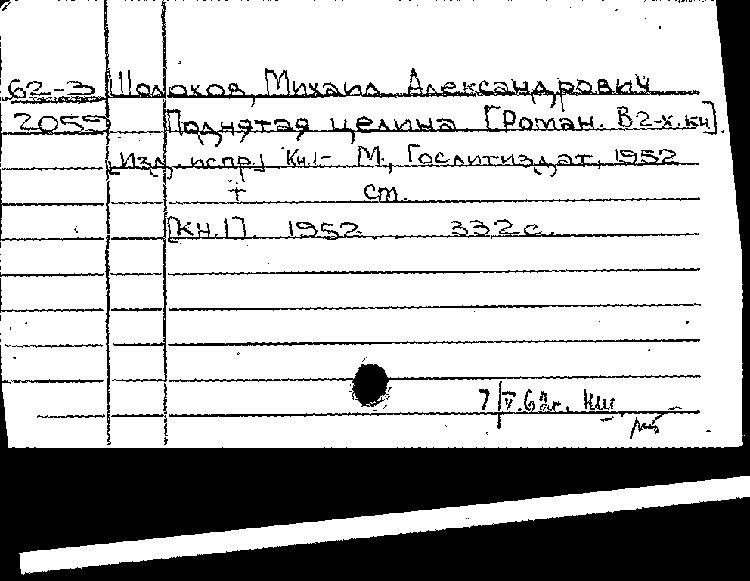 62-3 Шолохов, Михаил Александрович
2055 Поднятая целина [Роман. В 2-х кн].
[Изд. испр] Кн.1- М., Гослитиздат, 1952
т ст.
[Кн.1]. 1952 332 с.
7/V.62г. КШ